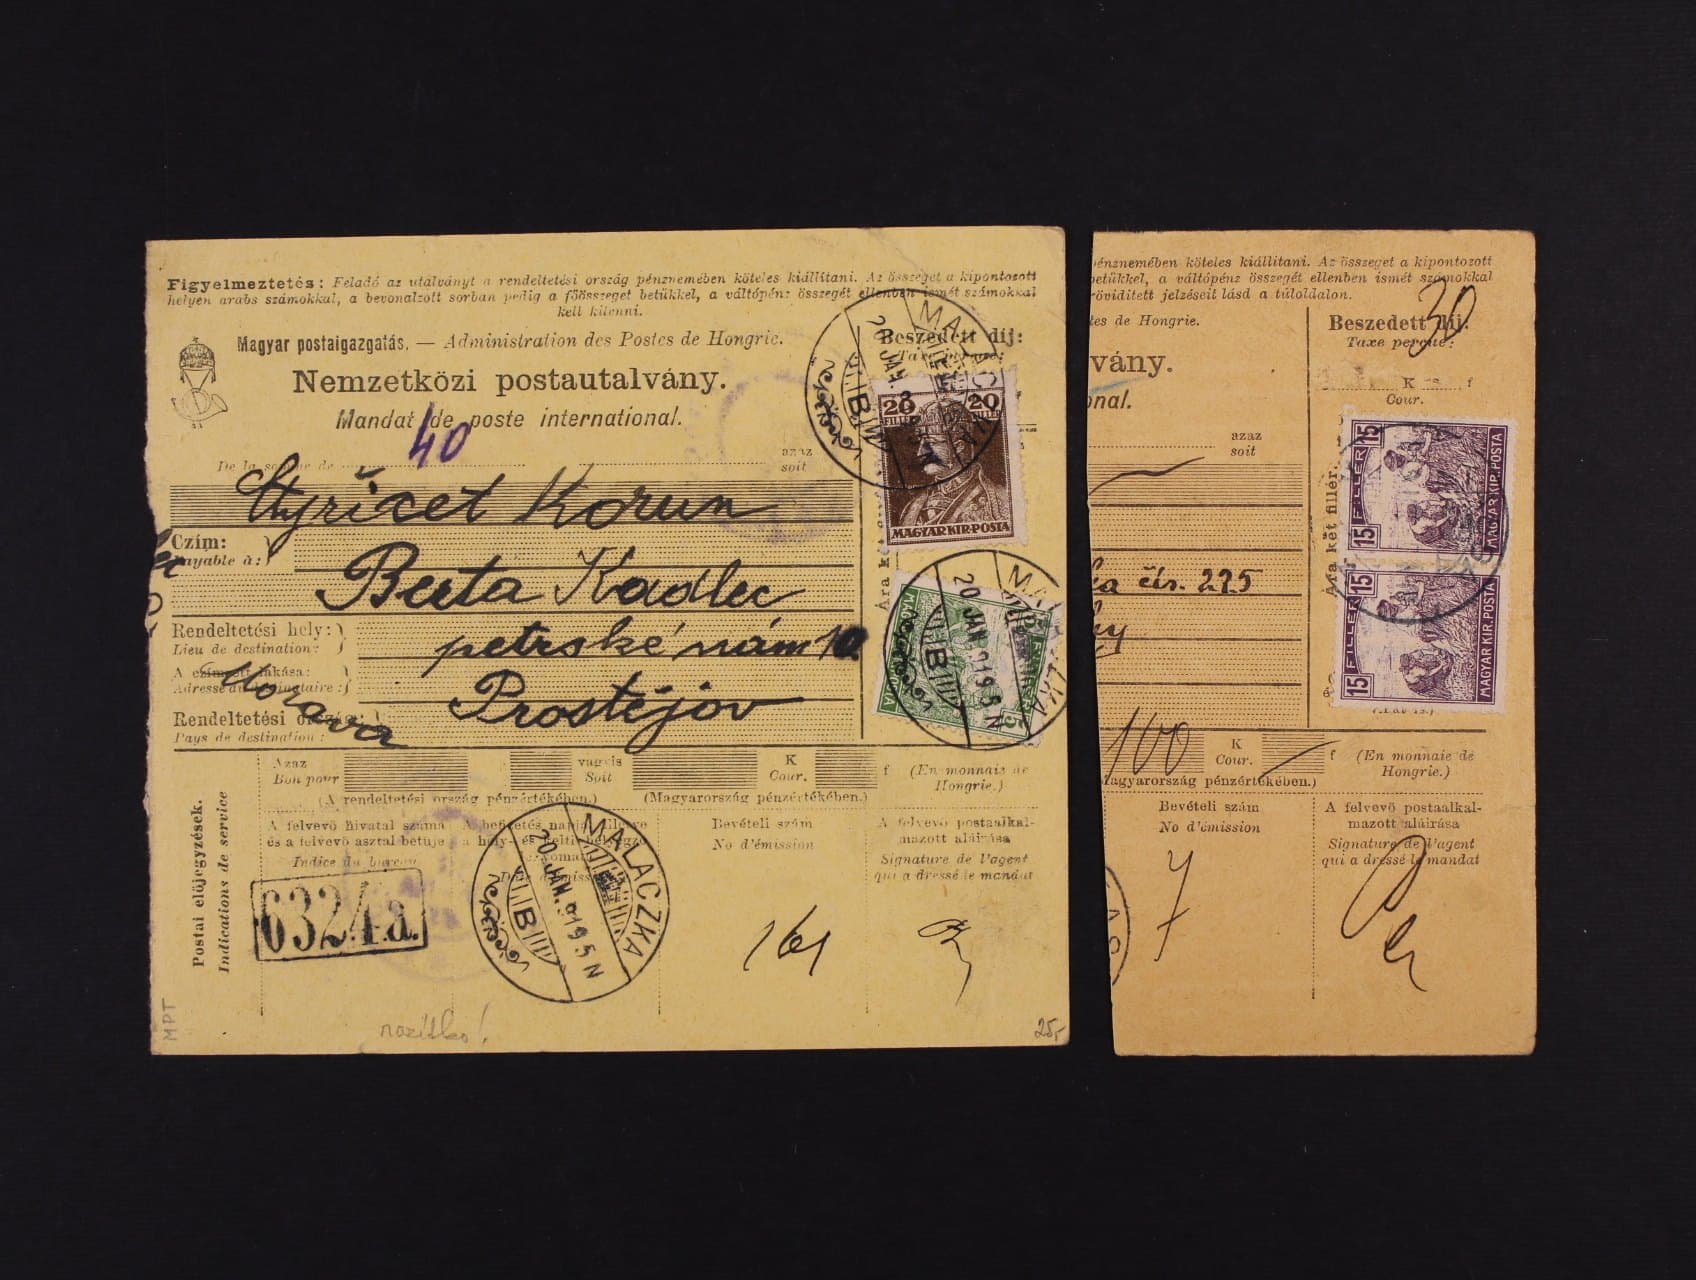 Figyelmeztetés: Feladó az utalványt a rendeltetési ország pénznemében köteles kiállítani. Az összeget a kipontozott
helyen arabs számokkal, a bevonalzott sorban pedig a főösszeget betükkel, a váltópénz összegét ellenben ismét számokkal
kell kitenni.
Magyar postaigazgatás. — Administration des Postes de Hongrie.
Beszedett díj:
Nemzetközi postautalvány.
Mandat de poste international.
40
De la somme de
azaz
soit
Czím:
Payable à:
Berta Kadlec
Rendeltetési hely:
Lieu de destination:
petrské nám 10
Prostějov
Morava
Pays de destination:
Azaz
Bon pour
vagyis
Soit
K
Cour.
f
(En monnaie de
Hongrie.)
(A rendeltetési ország pénzértékében.)
(Magyarország pénzértékében.)
Postai előjegyzések.
Indications de service
A felvevő hivatal száma
és a felvevő asztal betüje
Indice du bureau
Bevételi szám
No d'émission
A felvevő postaalkal-
mazott aláírása
Signature de l'agent
qui a dressé le mandat
6324a.
161
MPT
razítko!
25,-
20 FILLÉR 20
MAGYAR KIR. POSTA
MALACZKA
20 JAN. 919 5 N
B
pénznemében köteles kiállítani. Az összeget a kipontozott
betükkel, a váltópénz összegét ellenben ismét számokkal
rövidített jelzéseit lásd a túloldalon.
30
tes de Hongrie.
Beszedett díj:
Taxe perçue:
vány.
K f
Cour.
onal.
azaz
soit
Ára két fillér.
15 FILLÉR 15
MAGYAR KIR. POSTA
15 FILLÉR 15
MAGYAR KIR. POSTA
čís. 225
100
K
Cour.
f
(En monnaie de
Hongrie.)
Magyarország pénzértékében.)
Bevételi szám
No d'émission
A felvevő postaalkal-
mazott aláírása
Signature de l'agent
qui a dressé le mandat
7